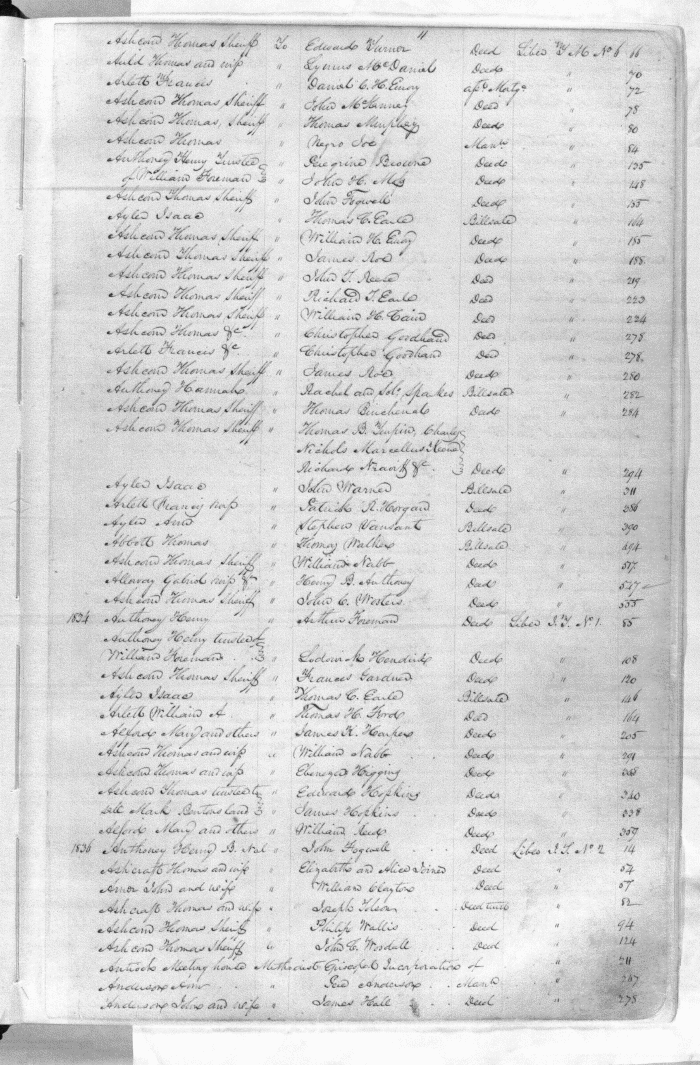 11
Ashcom Thomas Sheriff To Edward Turner Deed Liber T M No 6 16
Auld Thomas and wife " McDaniel Deed " 70
Arlett Francis " Daniel C. H. Emory " 72
Ashcom Thomas Sheriff " John Deed " 78
Ashcom Thomas, Sheriff " Thomas Murphey Deed " 80
Ashcom Thomas " Negro Joe Manu " 84
Anthoney Henry Trustee " Peregrine Deed " 135
of William Foreman " John H. Deed " 148
Ashcom Thomas Sheriff " John Fogwell Deed " 155
Ayler Isaac " Thomas C. Earle Billsale " 164
Ashcom Thomas Sheriff " William H. Emory Deed " 185
Ashcom Thomas Sheriff " James Roe Deed " 188
Ashcom Thomas Sheriff " John T. Reese Deed " 219
Ashcom Thomas Sheriff " Richard T. Earle Deed " 223
Ashcom Thomas Sheriff " William H. Cain Deed " 224
Ashcom Thomas &c. " Christopher Goodhand Deed " 278
Arlett Francis &c " Christopher Goodhand Deed " 278
Ashcom Thomas Sheriff " James Roe Deed " 280
Anthoney Hannah " Rachel and Solo. Sparkes Billsale " 282
Ashcom Thomas Sheriff " Thomas Deed " 284
Ashcom Thomas Sheriff " Thomas B. Turpin, Charles
Nichols Marcellus Keene
Richard &c. Deed " 294
Ayler Isaac " John Warner Billsale " 311
Arlett Francis wife " Patrick Deed " 386
Ayler Ann " Stephen Vansant Billsale " 390
Abbott Thomas " Thomas Walker Billsale " 494
Ashcom Thomas Sheriff " William Nabb Deed " 517
Gabriel wife &c " Henry B. Anthony Deed " 527
Ashcom Thomas Sheriff " John C. Wooters Deed " 555
1834 Anthoney Henry " Arthur Foreman Deed Liber J. T. No 1. 85
Anthoney Henry trustee of
William Foreman " Hendrix Deed " 108
Ashcom Thomas Sheriff " Frances Gardner Deed " 120
Ayler Isaac " Thomas C. Earle Billsale " 146
Arlett William A " Thomas H. Ford Deed " 164
Alford Mary and others " James K. Harper Deed " 205
Ashcom Thomas and wife " William Nabb Deed " 291
Ashcom Thomas and wife " Ebenezer Higgins Deed "
Ashcom Thomas trustee to " Edward Hopkins Deed " 340
sell Mark Bentons land " James Hopkins Deed " 338
Alford Mary and others " William Reed Deed " 359
1836 Anthoney Henry B. " John Fogwell Deed Liber J. T. No 2 14
Ashcraft Thomas and wife " Elizabeth and Alice Joiner Deed " 54
Amor John and wife " William Clayton Deed " 57
Ashcraft Thomas and wife " Joseph Deed " 82
Ashcom Thomas Sheriff " Philip Wallis Deed " 94
Ashcom Thomas Sheriff " John C. Deed " 124
Antioch Meeting house Methodist Episcopal Incorporation of " 211
Anderson Ann " Anderson Manu " 287
Anderson John and wife " James Hall Deed " 278